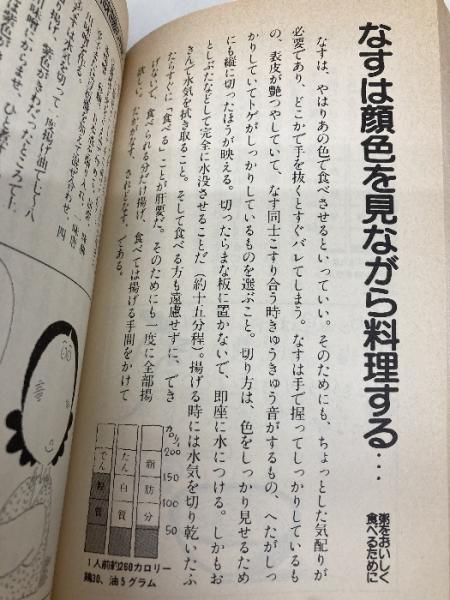 なすは顔色を見ながら料理する…
粥をおいしく
食べるために
なすは、やはりあの色で食べさせるといっていい。そのためにも、ちょっとした気配りが
必要であり、どこかで手を抜くとすぐバレてしまう。なすは手で握ってしっかりしているも
の、表皮が艶つやしていて、なす同士こすり合う時きゅうきゅう音がするもの、へたがしっ
かりしていてトゲがしっかりしているものを選ぶこと。切り方は、色をしっかり見せるため
にも縦に切ったほうが映える。切ったらまな板に置かないで、即座に水につける。しかもお
としぶたなどして完全に水没させることだ（約十五分程）。揚げる時には水気を切り乾いたふ
きんで水気を拭き取ること。そして食べる方も遠慮せずに、でき
たらすぐに〝食べる〟ことが肝要だ。そのためにも一度に全部揚
げないで、食べられる分だけ揚げ、食べては揚げる手間をかけて
欲しい。たかがなす、されどなす、である。
カロリー
200
150
100
50
脂肪分
たん白質
でん粉質
1人前約260カロリー
鶏30、油5グラム
揚げ油でじっく八
水気を切って